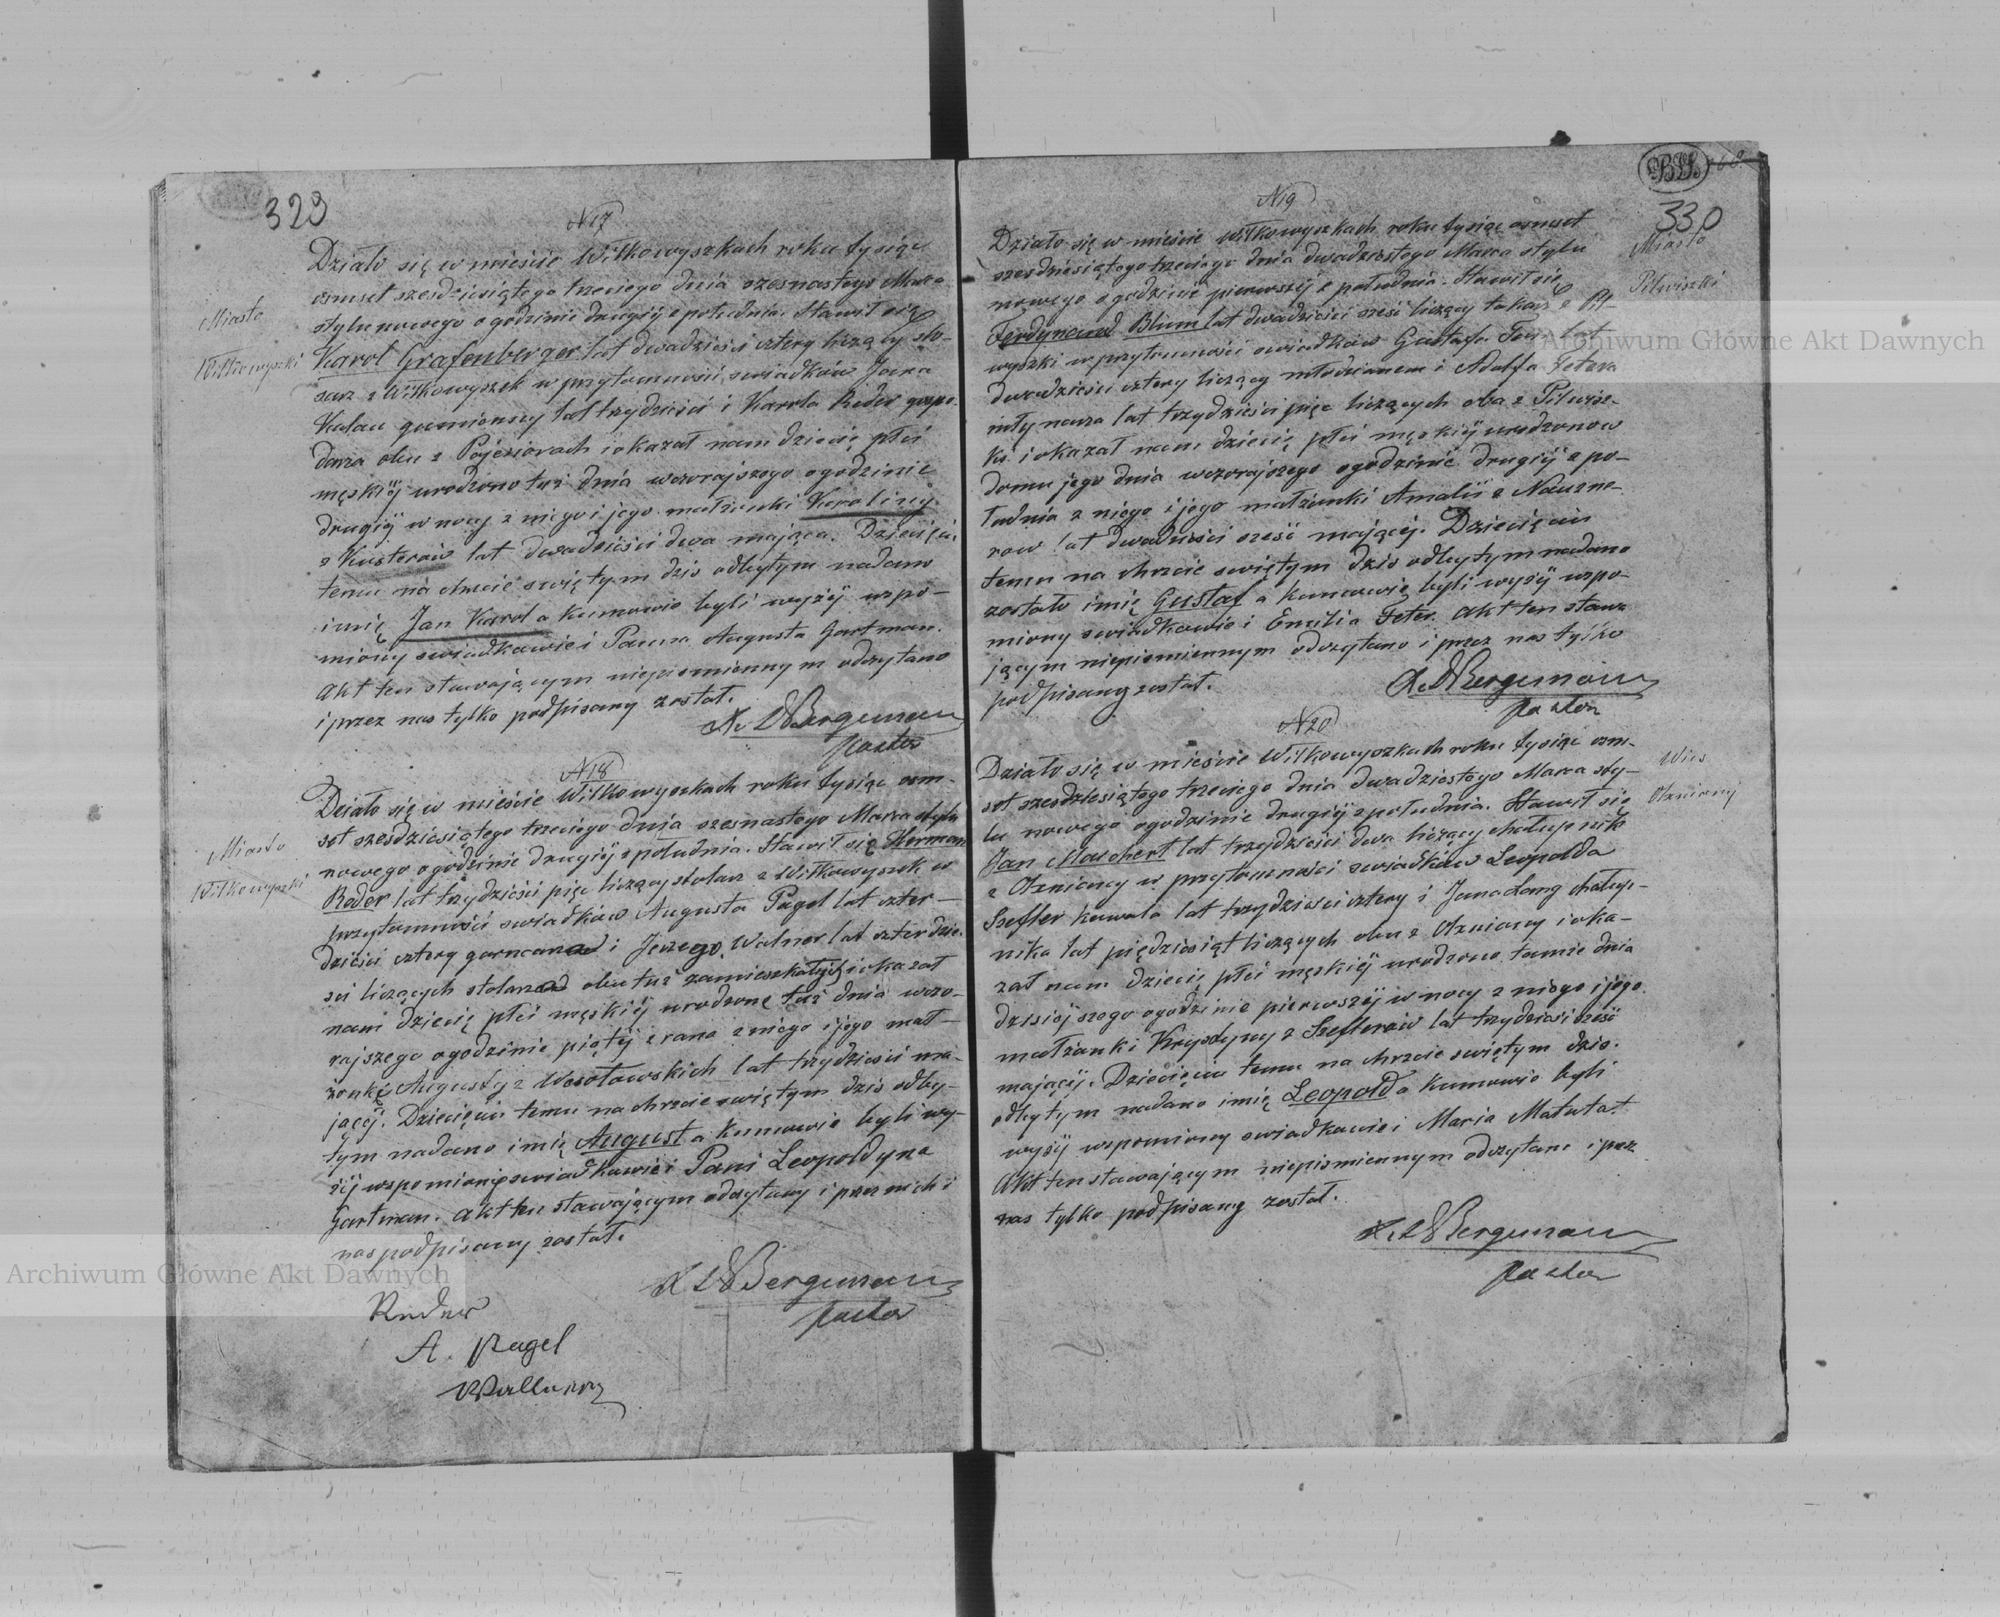 329
N17
Miasto
Wiłkowyszki
Działo się w mieście Wiłkowyszkach roku tysiąc
osmset szesdziesiątego trzeciego dnia szesnastego Marca
stylu nowego o godzinie drugiéj z południa. Stawił się
Karol Grafenberger lat dwadzieścia cztery liczący
z Wiłkowyszek w przytomności swiadków Jana
gumienny lat trzydzieści i Karola Reder gospo-
darza obu z i okazał nam dziecię płci
męskiéj urodzone tuż dnia wczorajszego o godzinie
drugiéj w nocy z niego i jego małżonki Karoliny
z Kusterów lat dwadzieścia dwa mająca. Dziecięciu
temu na chrzcie swiętym dzis odbytym nadano
imię Jan Karol a kumowie byli wyżéj wspo-
miony swiadkowie i Panna Augusta Gartman.
Akt ten stawającym niepismiennym odczytano
i przez nas tylko podpisany został.
X. W Bergmann
Pastor
N18
Miasto
Wiłkowyszki
Działo się w mieście Wiłkowyszkach roku tysiąc osm-
set szesdziesiątego trzeciego dnia szesnastego Marca stylu
nowego o godzinie drugiéj z południa. Stawił się Herman
Reder lat trzydzieści pięc liczący stolarz z Wiłkowyszek w
przytomności swiadków Augusta Pagel lat czter-
dzieści cztery garncarza i Jerzego Walner lat czterdzie-
sci liczących stolarza obu tuż zamieszkałych i okazał
nam dziecię płci męskiéj urodzone tuż dnia wczo-
rajszego o godzinie piątéj z rana z niego i jego mał-
żonki Augusty z Wesołowskich lat trzydziesci ma-
jącéj. Dziecięciu temu na chrzcie swiętym dzis odby-
tym nadano imię August a kumowie byli wy-
żéj wspomioni swiadkowie i Pani Leopoldyna
Gartman. Akt ten stawającym odczytany i przez nich i
nas podpisany został.
X W Bergmann
Pastor
Reder
A. Pagel
330
N19
Miasto
Pilwiszki
Działo się w mieście Wiłkowyszkach roku tysiąc osmset
szesdziesiątego trzeciego dnia dwudziestego Marca stylu
nowego o godzinie pierwszéj z południa. Stawił się
Ferdynand Blum lat dwadzieścia sześć liczący z Pil-
wyszki w przytomności swiadków Gustafa lat
dwadzieścia cztery liczący młodzianem i Adolfa Feter
młynarza lat trzydzieści pięc liczących oba z Pilwisz-
ki i okazał nam dziecię płci męskiéj urodzono w
domu jego dnia wczorajszego o godzinie drugiéj z po-
łudnia z niego i jego małżonki Amalii z
row lat dwadzieści sześć mającéj. Dziecięciu
temu na chrzcie swiętym dzis odbytym nadano
zostało imię Gustaf a kumowie byli wyżéj wspo-
miony swiadkowie i Emilia Feter. Akt ten stawa-
jącym niepismiennym odczytano i przez nas tylko
podpisany został.
X. W Bergmann
Pastor
N20
Wieś
Działo się w mieście Wiłkowyszkach roku tysiąc osm-
set szesdziesiątego trzeciego dnia dwudziestego Marca sty-
lu nowego o godzinie drugiéj z południa. Stawił się
Jan Maschert lat trzydzieści dwa liczący chałupnik
z w przytomności swiadków Leopolda
Szefler kowala lat trzydzieści cztery i Jana Lang chałup-
nika lat pięćdziesiąt liczących obu z i oka-
zał nam dziecię płci męskiéj urodzono tamie dnia
dzisiéjszego o godzinie pierwszéj w nocy z niego i jego
małżonki Krystyny z Szeflerów lat trzydzieści sześć
mającéj. Dziecięciu temu na chrzcie swiętym dzis.
odbytym nadano imię Leopold a kumowie byli
wyżéj wspomiony swiadkowie i Maria Matutat.
Akt ten stawającym niepismiennym odczytano i przez
nas tylko podpisany został.
X. W Bergmann
Pastor
Archiwum Główne Akt Dawnych
Archiwum Główne Akt Dawnych